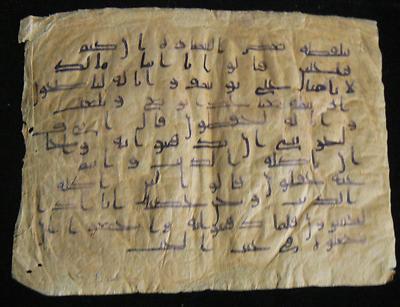 يلتقطه بعض السيارة ان كنتم
فعلين قالوا يابانا مالك
لا تامنا على يوسف وانا له لنصحون
ارسله معنا غدا يرتع ويلعب
وانا له لحفظون قال اني
ليحزنني ان تذهبوا به واخا
ف ان ياكله الذيب وانتم
عنه غفلون قالوا لين اكله
الذيب ونحن عصبة انا اذا
لخسرون فلما ذهبوا به واجمعوا ان
يجعلوه في غيبت الجب